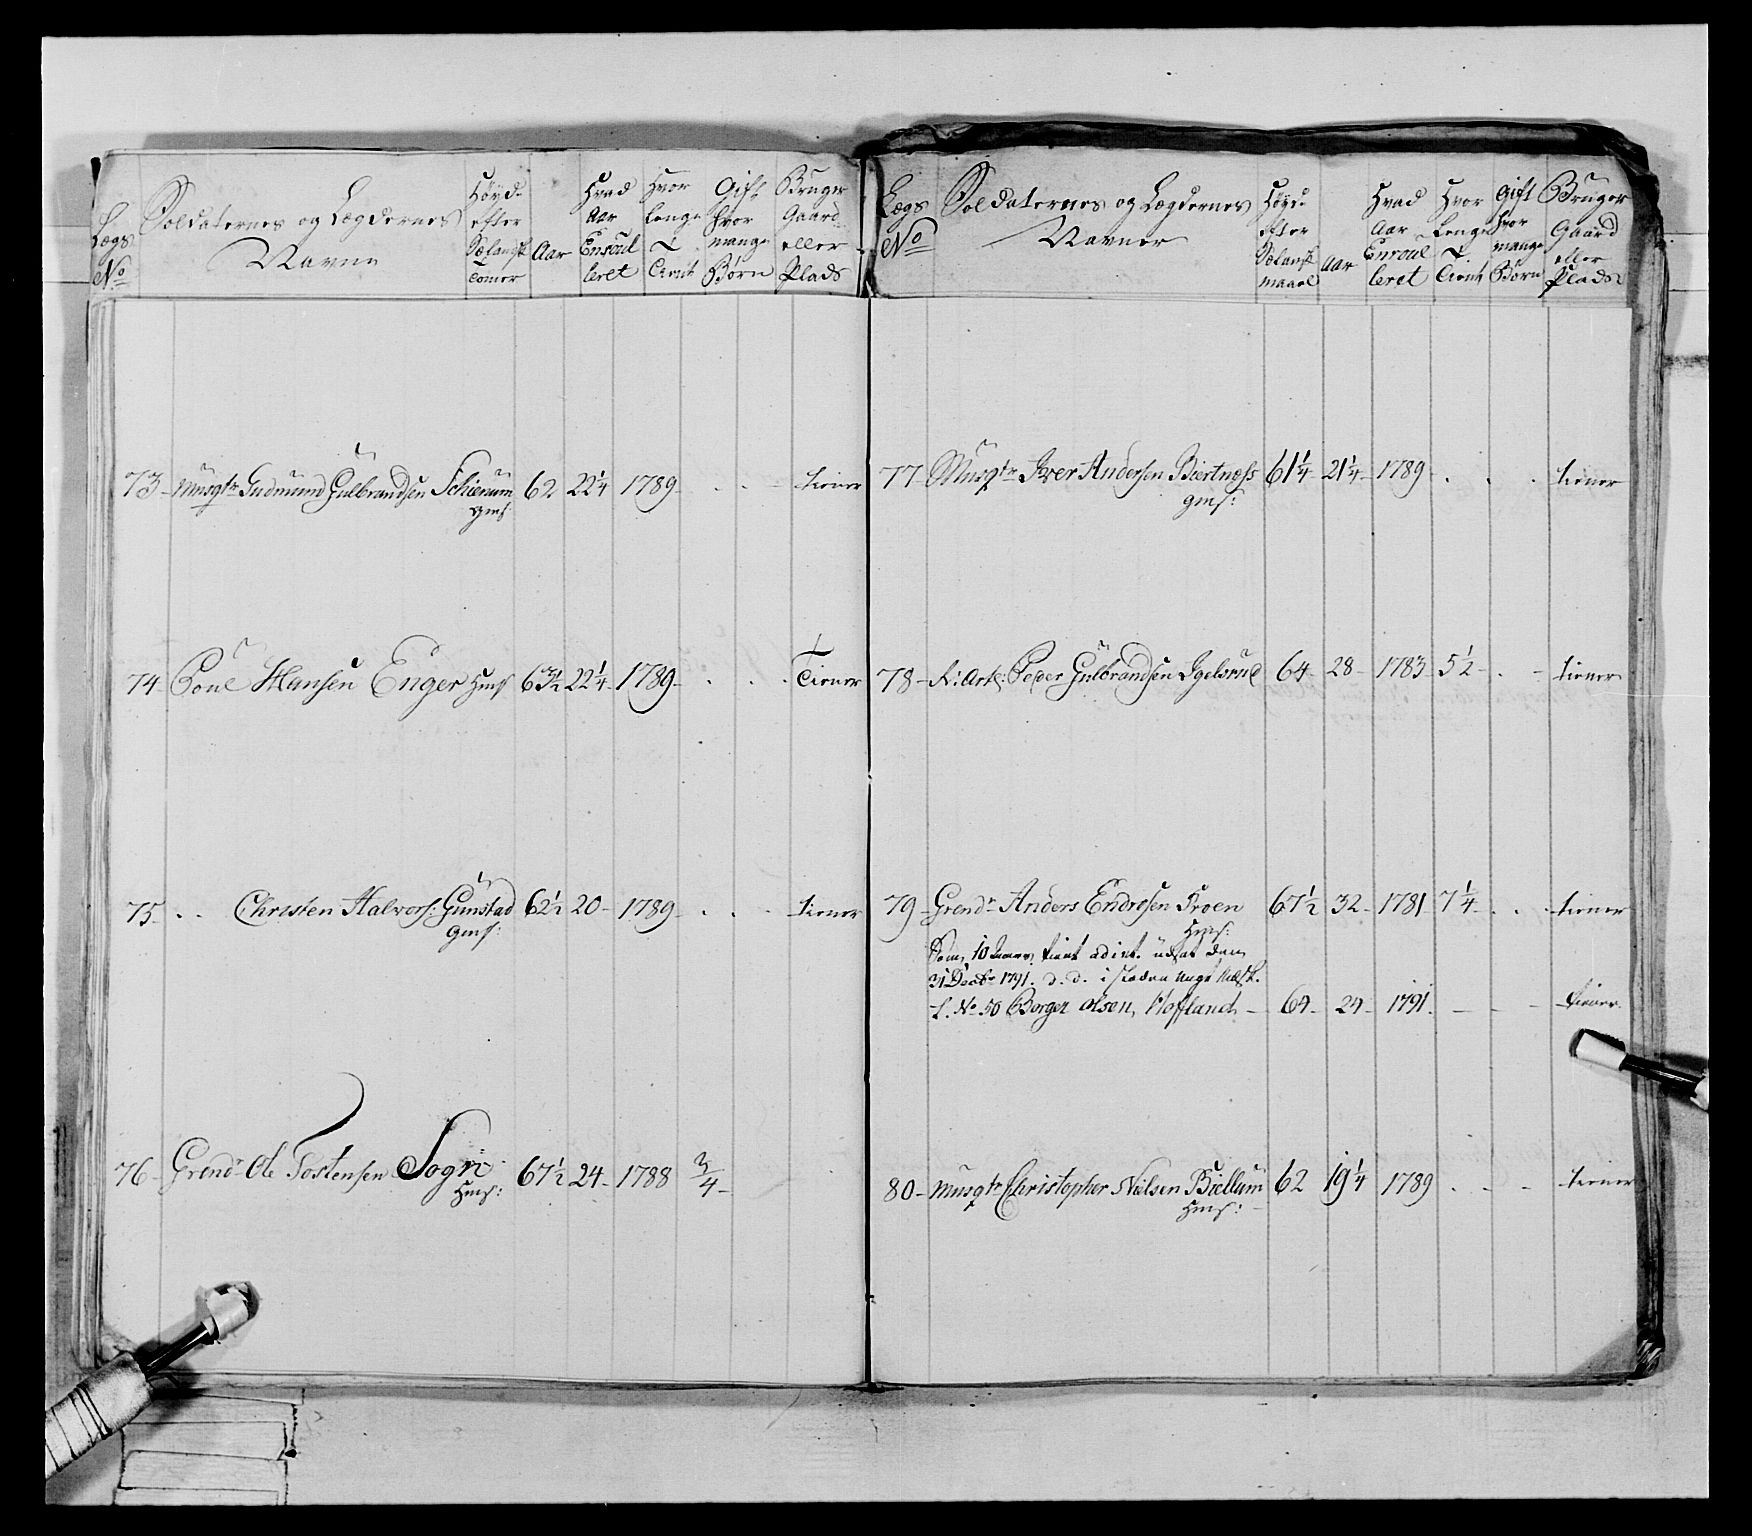 Lægs No Soldaternes og Lægdernes Navne Høyde efter Sælansk Tomer Aar Hvad Aar Enroulleret Hvor Lenge Tient Gift Hvor mange Børn Bruger Gaard eller Plads
73 Musqtr Gudmund Gulbrandsen Schierum 62 22¼ 1789 tiener
Gms
74 Poul Hansen Enger Hms 63½ 22¼ 1789 Tiener
75 Christen Halvors: Gunstad 62½ 20 1789 tiener
Gms:
76 Grendr Ole Tostensen Sogn 67½ 24 1788 3/4
Hms:
Lægs No Soldaternes og Lægdernes Navner Høyde efter Sælansk maael Aar Hvad Aar Enroulleret Hvor Lenge Tient Gift Hvor mange Børn Bruger Gaard eller Plads
77 Musqtr Iver Andersen Biertnæss 61¼ 21¼ 1789 tiener
gms:
78 Peder Gulbrandsen Igelsrud 64 28 1783 5½ tiener
79 Grendr Anders Endresen Froen 67½ 32 1781 7¼ tiener
Hms:
Som 10 tient udsat den
31 Decbr 1791. d. d. i steden
L. No 50 Borger Olsen Hofland 64 24 1791. tiener
80 Musqtr Christopher Nielsen Biellum 62 19¼ 1789 tiener
Hms: